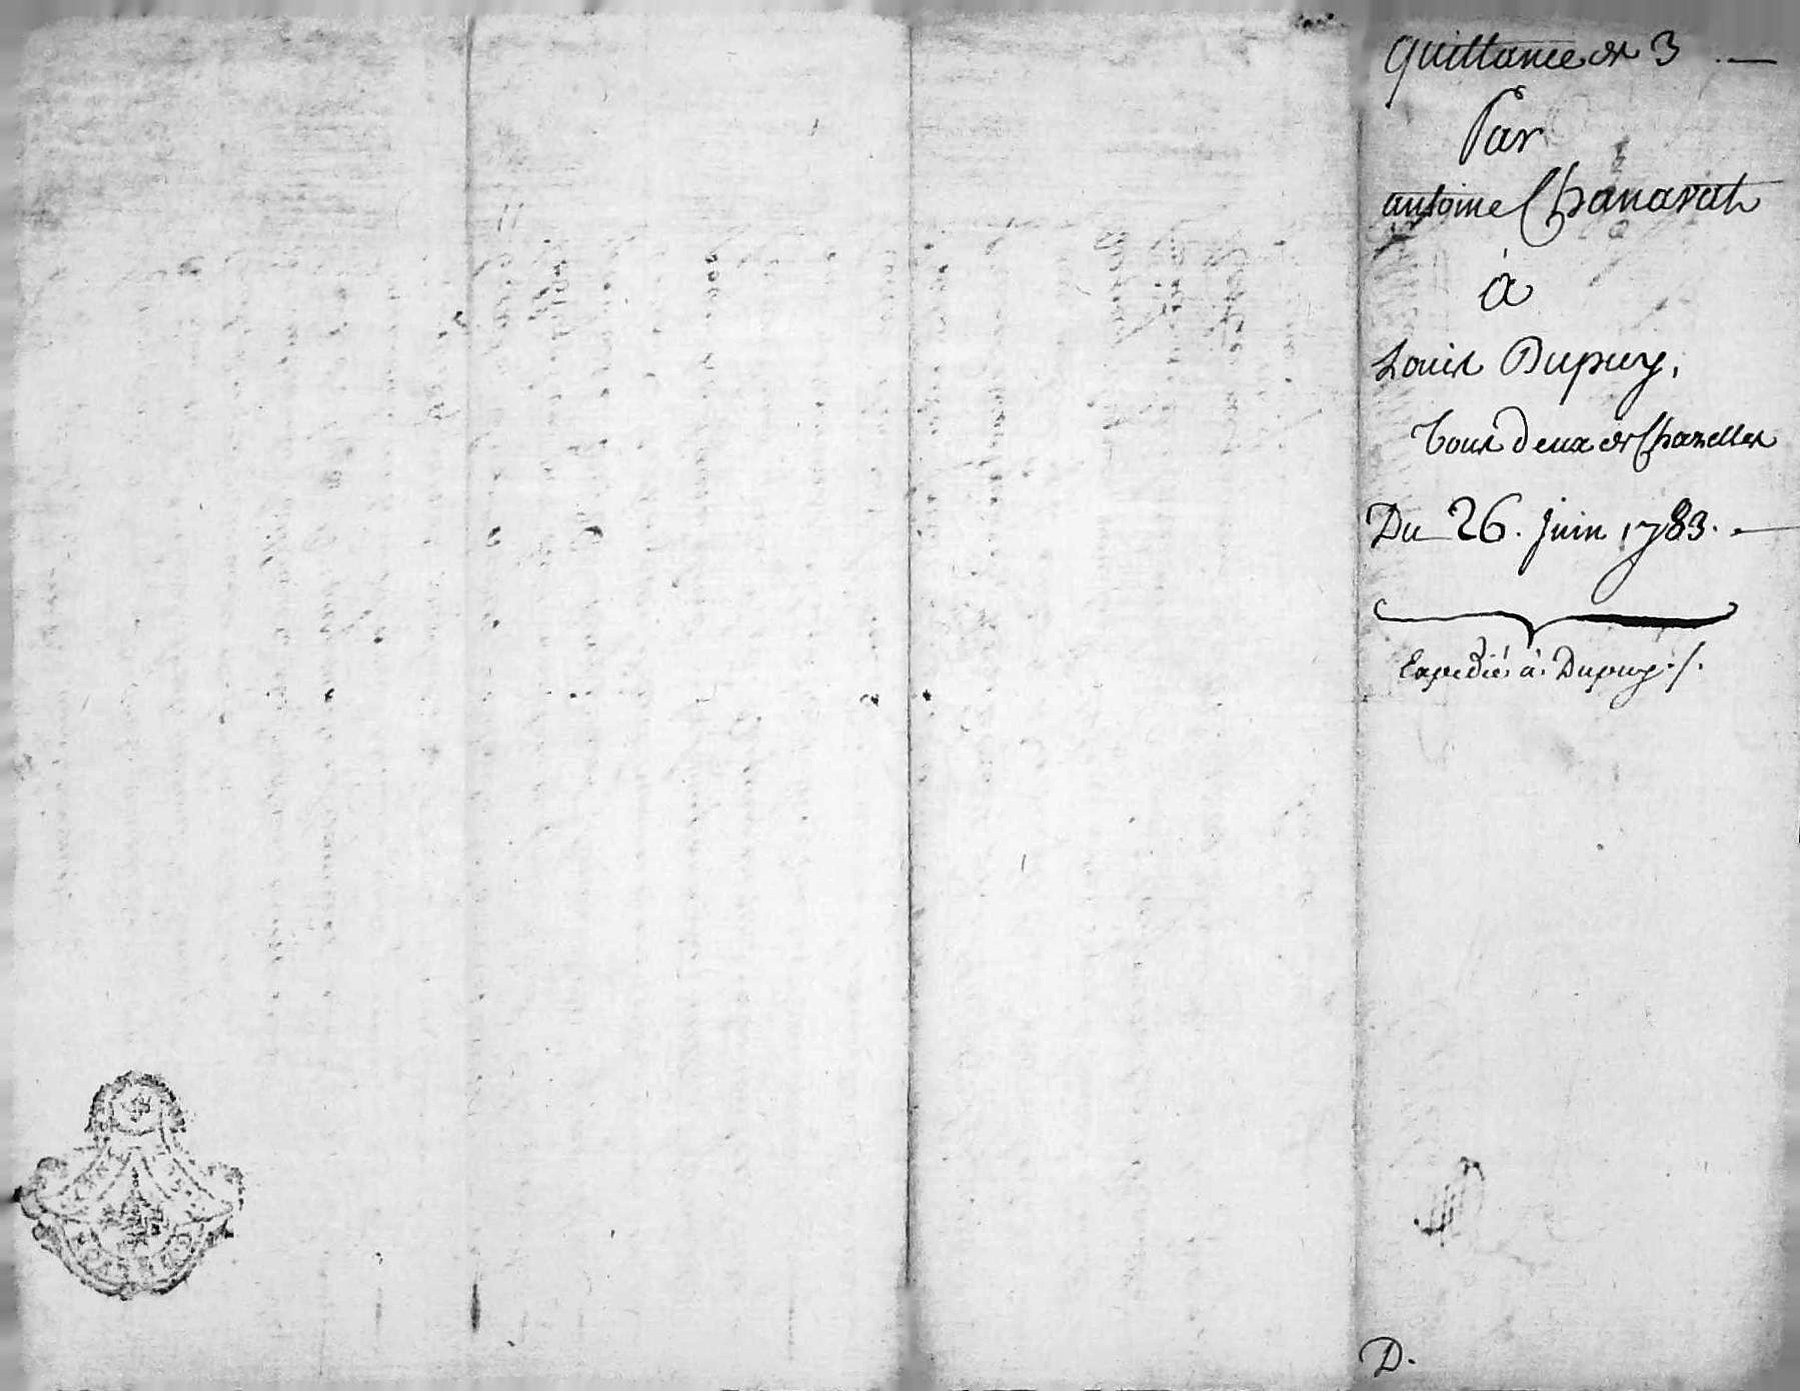 quittance de 3 . —
Par
antoine Chanavat
à
Louis Dupuy,
tous deux de Chazelles
Du 26. juin 1783. —
Expedié à Dupuy ./.
D.